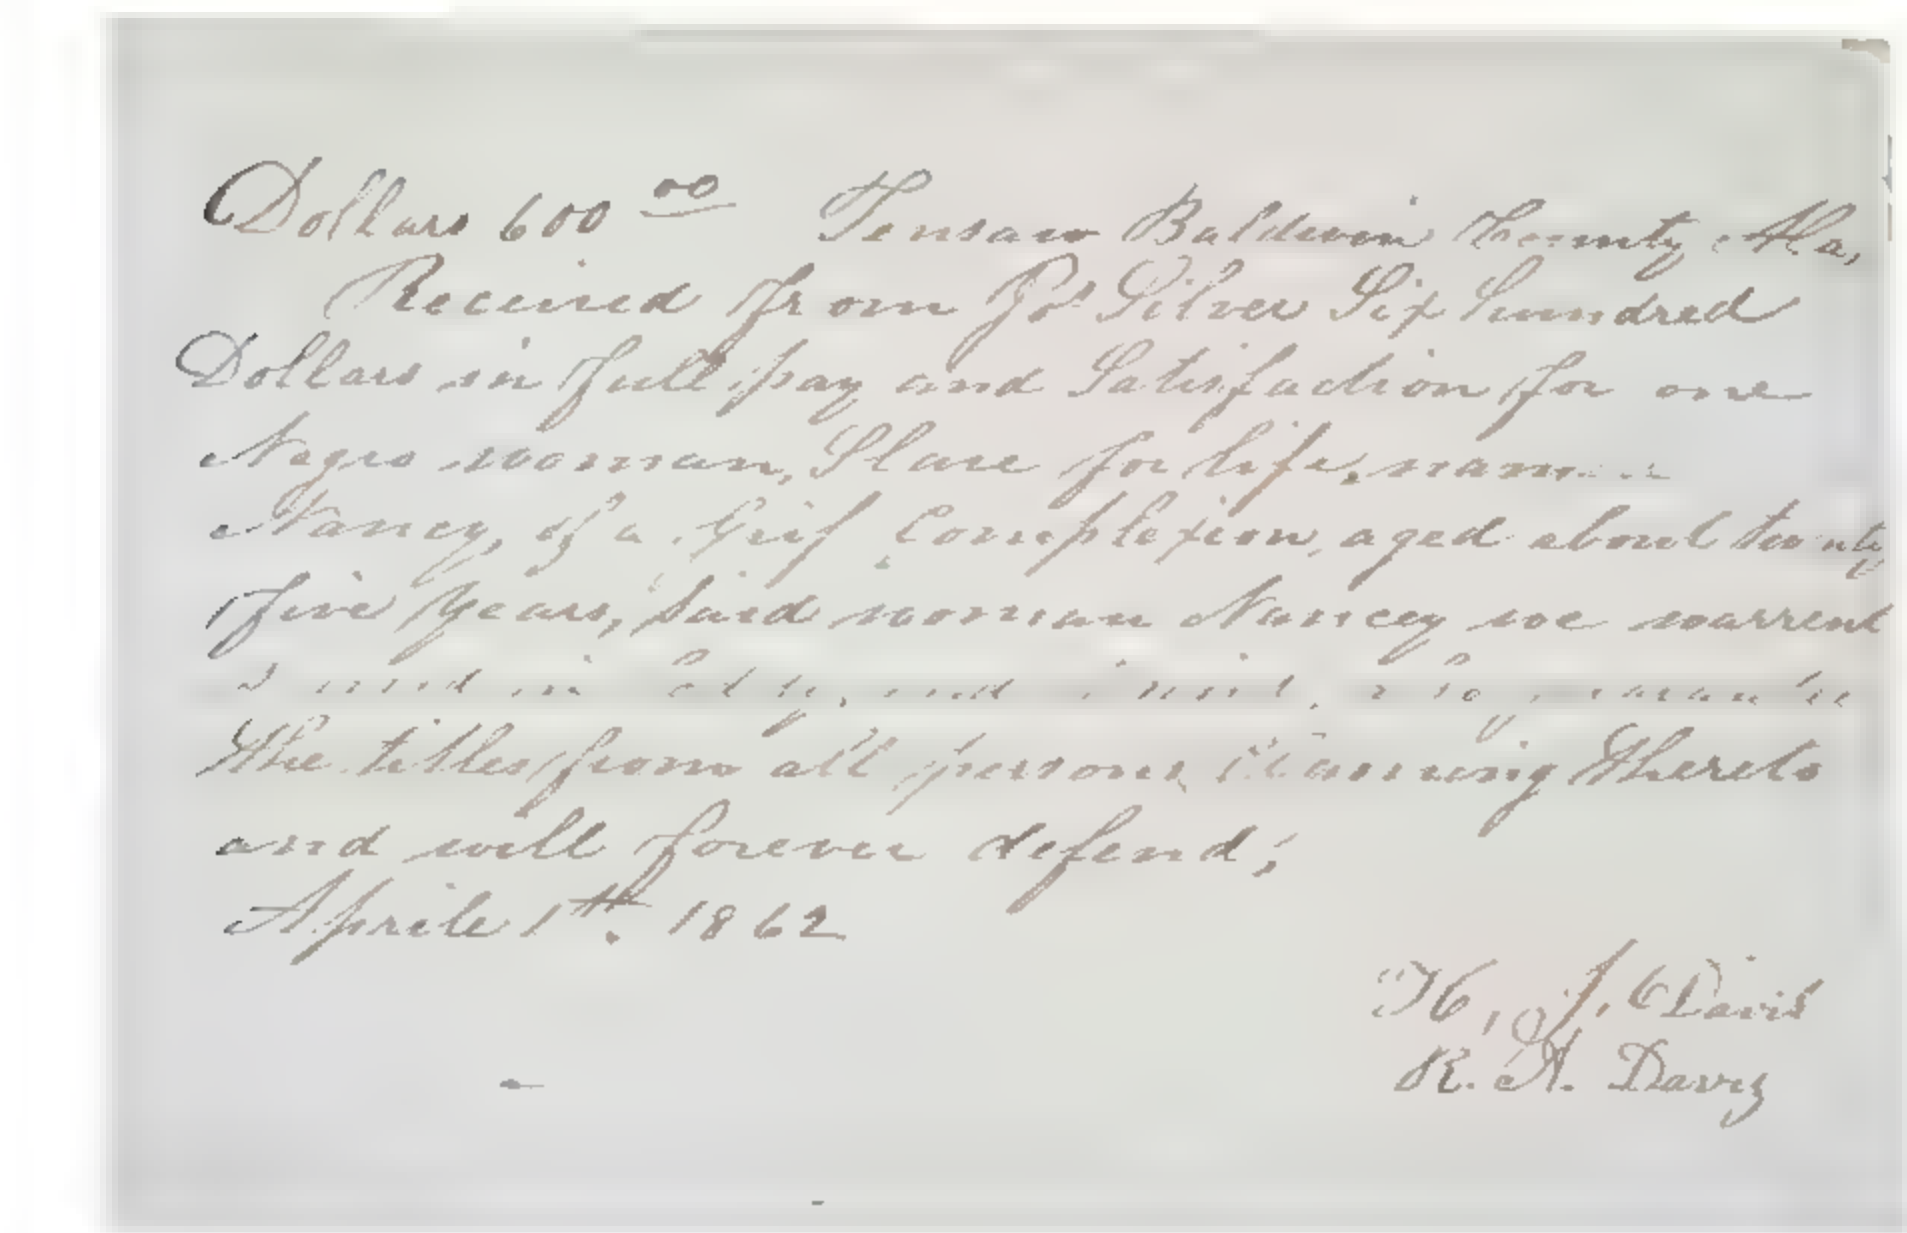 Dollars 600 00 Tensaw Baldwin County Ala,
Received from Silver Six hundred
Dollars in full pay and Satisfaction for one
Negro woman, Slave for life,
Nancy, of a Grif Complexion, aged about twenty
five years, Said woman Nancy we warrent
and
the titles from all persons Claiming thereto
and will forever defend;
Aprile 1th. 1862
H, J, Davis
R. A. Davis